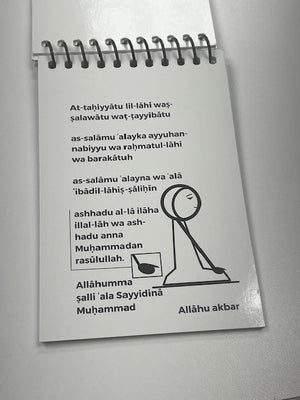 At-taḥiyyātu lil-lāhi waṣ-
ṣalawātu waṭ-ṭayyibātu
as-salāmu ʿalayka ayyuhan-
nabiyyu wa raḥmatul-lāhi
wa barakātuh
as-salāmu ʿalayna wa ʿalā
ʿibādil-lāhiṣ-ṣāliḥīn
ashhadu al-lā ilāha
illal-lāh wa ash-
hadu anna
Muḥammadan
rasūlullah.
Allāhumma
ṣalli ʿala Sayyidinā
Muḥammad
Allāhu akbar